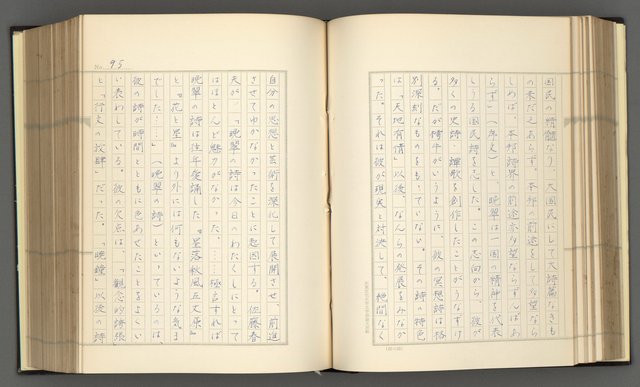 国民の精髄なり、大国民にして大詩篇なきも
の未だこれあらず。本邦の前途をして多望なら
しめば、本邦詩界の前途亦多望ならずんばあ
らず」（序文）と、晩翠は一国の精神を代表
しうる国民詩を志した。この志向から、彼が
多くの史詩・譚歌を創作したことがうなずけ
る。だが樗牛がいうように、彼の冥想詩は格
別深刻なものをもっていない。その詩の特色
は「天地有情」以後、なんらの発展をみなか
った。それは彼が現実と対決して、絶間なく
No. 95
自分の思想と芸術を深化して展開させ、前進
させてゆかなかったことに起因する。佐藤春
夫が、「晩翠の詩は今日のわたくしにとって
はほとんど魅力がなかった。……極言すれば
晩翠の詩は往年愛誦した『星落秋風五丈原』
と『花と星』より外には何もないような気ま
でした……」（晩翠の詩）といっているのは、
彼の詩が時間とともに色あせたことをよくい
い表わしている。彼の欠点は、「観念的誇張
と「行文の放肆」だった。「晩鐘」以後の詩